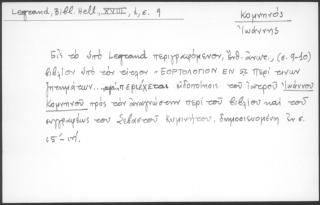 Legrand, Bibl. Hell., XVIII, 1, σ. 9
Κομνηνός
Ἰωάννης
Εἰς τὸ ὑπὸ Legrand περιγραφόμενον, ἔνθ. ἀνωτ., (σ. 9-10)
βιβλίον ὑπὸ τὸν τίτλον «ΕΟΡΤΟΛΟΓΙΟΝ ΕΝ ᾧ περί τινων
ζητημάτων... περιέχεται εἰδοποίησις τοῦ ἰατροῦ Ἰωάννου
Κομνηνοῦ πρὸς τὸν ἀναγνώστην περὶ τοῦ βιβλίου καὶ τοῦ
συγγραφέως του Σεβαστοῦ Κυμινήτου, δημοσιευομένη ἐν σ.
ιϚ΄-ιη΄.